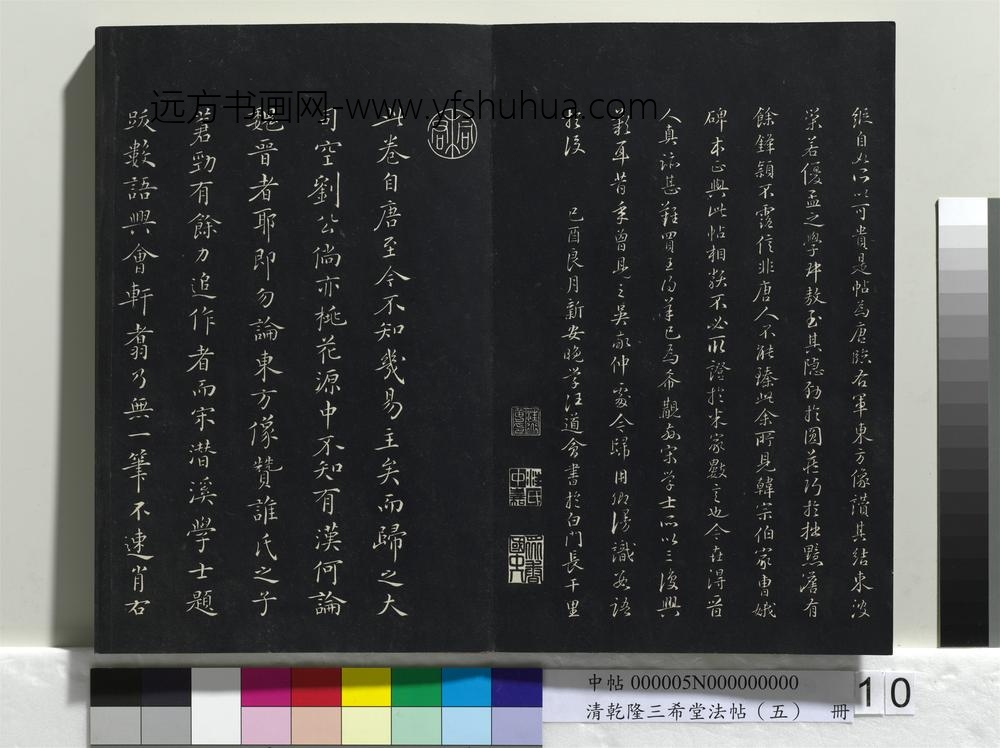 远方书画网-www.yfshuhua.com
維自如所以可貴是帖為唐臨右軍東方像讚其結束波
榮若優孟之學叔敖至其隱勁於圓藏巧於拙黯澹有
餘鋒穎不露信非唐人不能臻此余所見韓宗伯家曹娥
碑本正與此帖相類不必取證於米家數言也今世得晉
人真跡甚難買王得羊已為希觀
宋學士所以三復興
歎耳昔季曾見之吳
仲
今歸用卿漫識
語
於後
己酉良月新安晚學汪道會書於白門長干里
此卷自唐至今不知幾易主矣而歸之大
司空劉公倘亦桃花源中不知有漢何論
魏晉者耶即勿論東方像贊誰氏之子
蒼勁有餘力追作者而宋潛溪學士題
跋數語興會軒翥乃無一筆不逮肖右
中帖 000005N000000000
清乾隆三希堂法帖（五） 冊
10